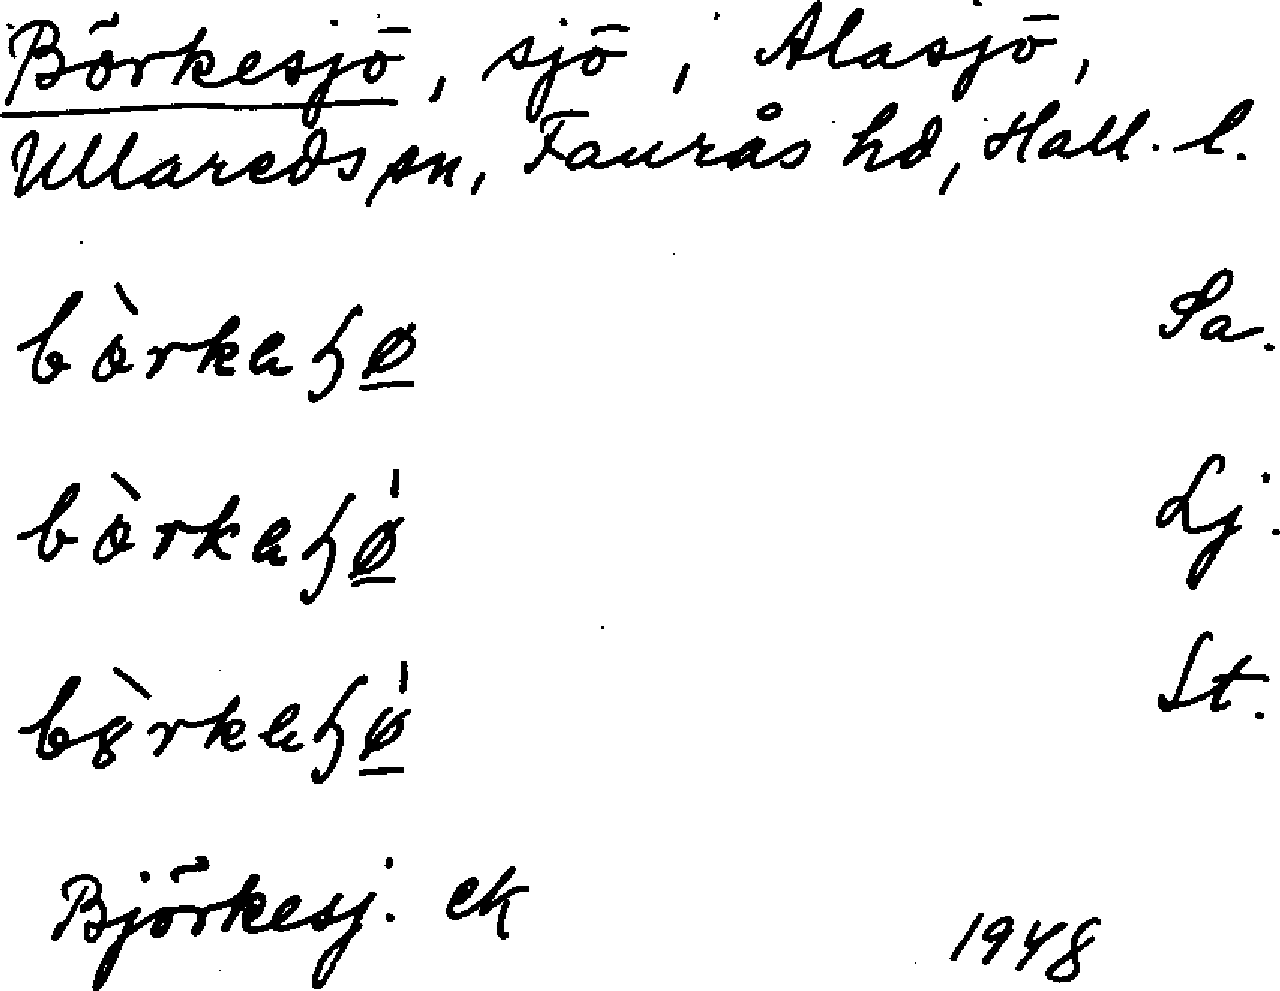 Börkesjö, sjö, Alasjö,
Ullareds sn, Faurås hd, Hall. l.
bòrkaɧø Sa.
bòrkaɧǿ Lj.
bꝍ̀rkaɧǿ St.
Björkesj. ek 1948